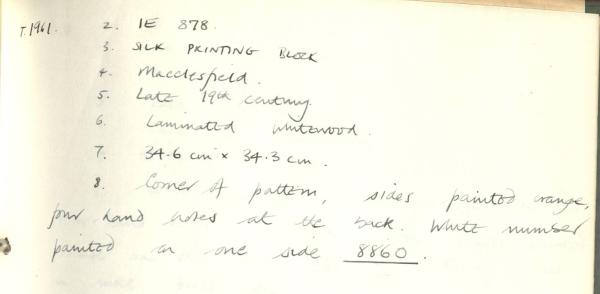 T.1961. 2. IE 878.
3. SILK PRINTING BLOCK
4. Macclesfield.
5. Late 19th century.
6. Laminated whitewood.
7. 34.6 cm × 34.3 cm.
8. Corner of pattern, sides painted orange,
four hand holes at the back. White number
painted on one side 8860.